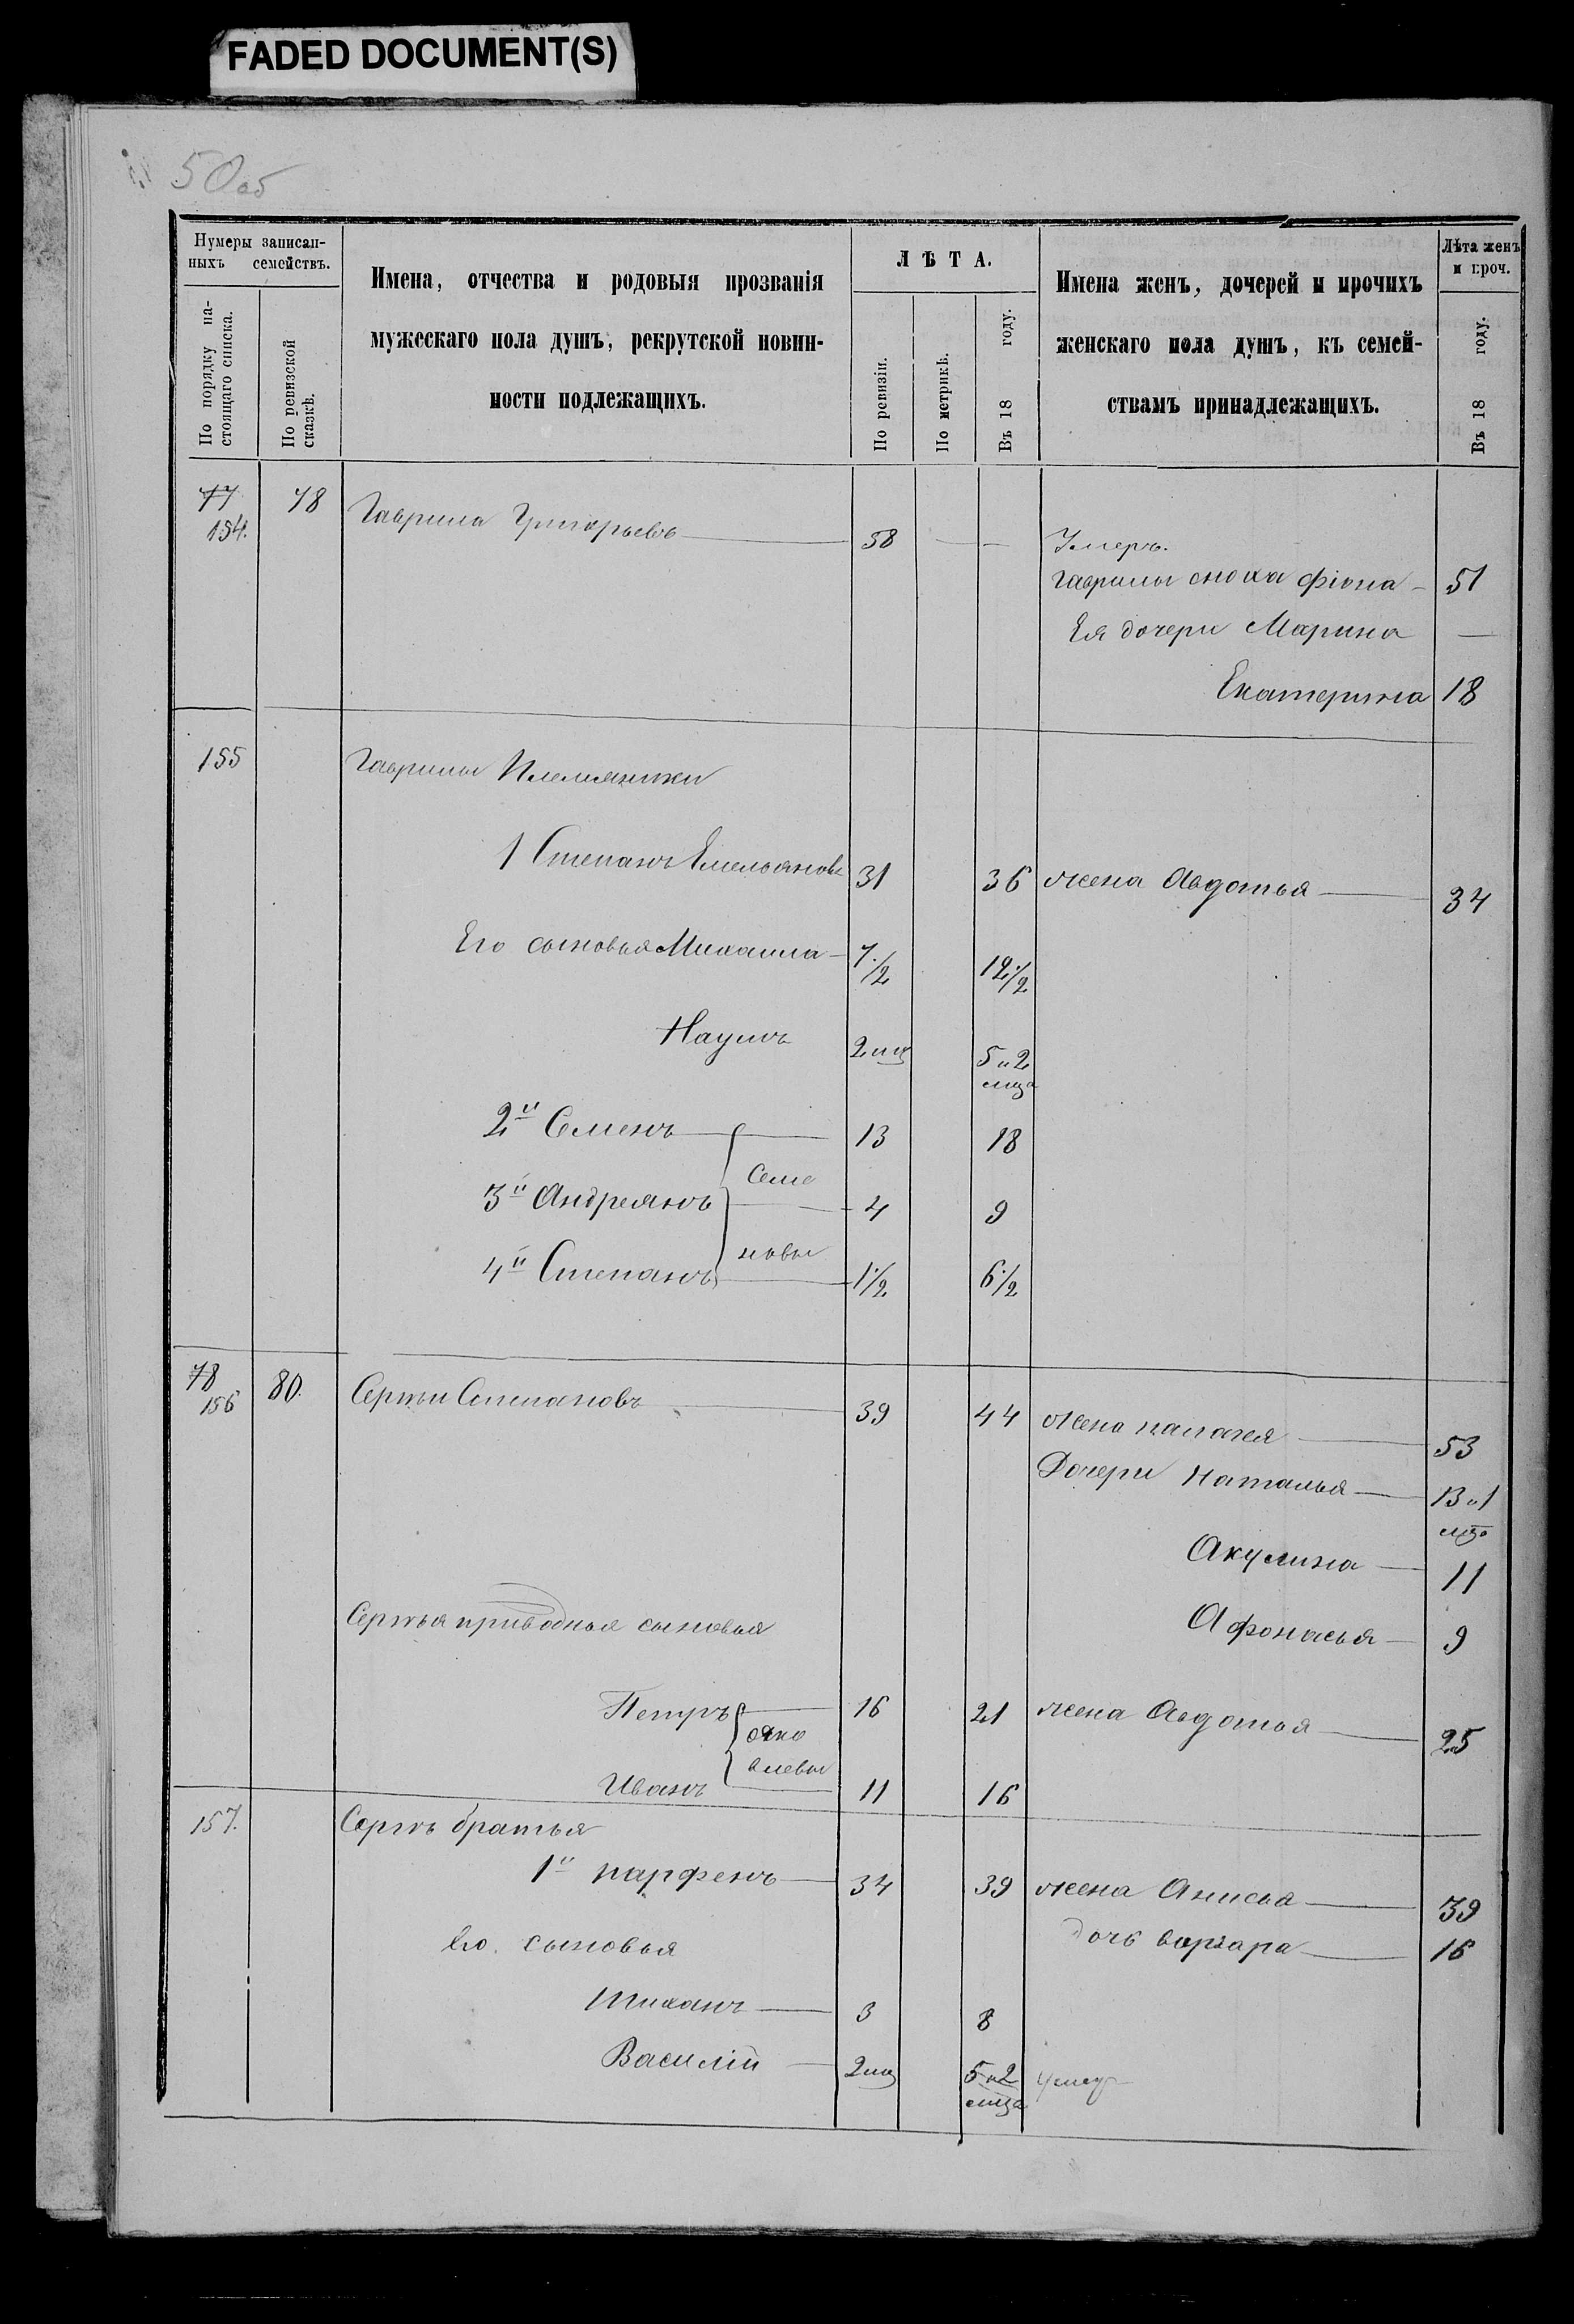 FADED DOCUMENT(S)
50 об
Нумеры записан-
ныхъ семействъ.
По порядку на-
стоящаго списка.
По ревизской
сказкѣ.
Имена, отчества и родовыя прозванія
мужескаго пола душъ, рекрутской повин-
ности подлежащихъ.
ЛѢТА.
По ревизіи.
По метрикѣ.
Въ 18 году.
Имена женъ, дочерей и прочихъ
женскаго пола душъ, къ семей-
ствамъ принадлежащихъ.
Лѣта женъ
и проч.
Въ 18 году.
77 78
154. Гаврила Григорьевъ 58 — — Умеръ.
Гаврилы сноха Фіона 51
Ея дочери Марина —
Екатерина 18
155 Гаврилы Племяники
1 Степанъ Емельяновъ 31 36 жена Авдотья 34
Его сыновья Михаила 7 1/2 12 1/2
Наумъ 2 мц 5 и 2
мца
2й Семенъ 13 18
Семе
3й Андреянъ 4 9
новы
4й Степанъ 1 1/2 6 1/2
78 80.
156 Сергѣй Степановъ 39 44 жена палагея 53
Дочери Наталья 13 и 1
мца
Акулина 11
Сергѣя приводныя сыновья Афонасья 9
Петръ 16 21 жена Авдотья 25
Яко
влевы
Иванъ 11 16
157. Сергѣя братья
1й парфенъ 34 39 жена Анисья 39
Его сыновья дочь варвара 16
Тиханъ 3 8
Василій 2 мц 5 и 2 умер
мца